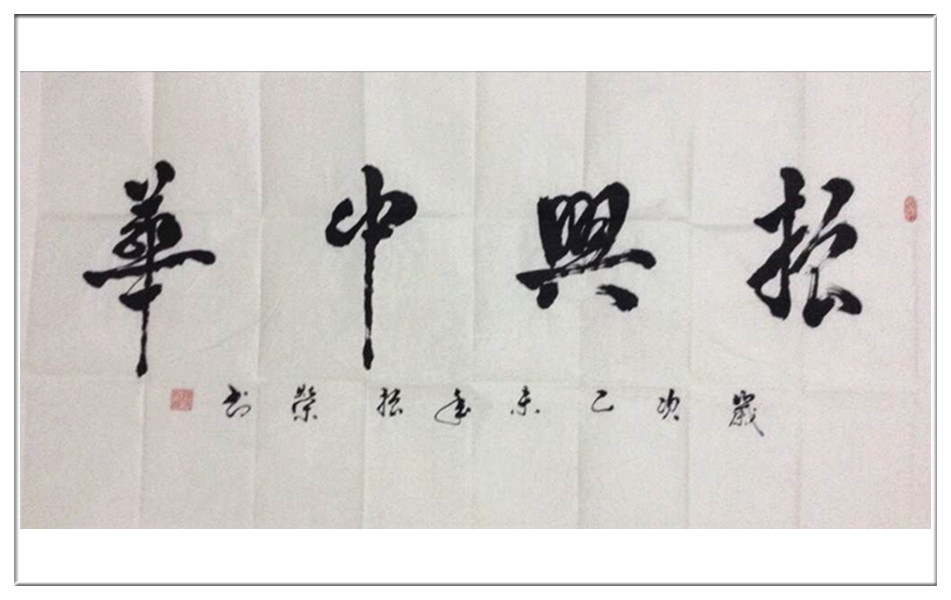 振興中華
歲次乙未年振榮书